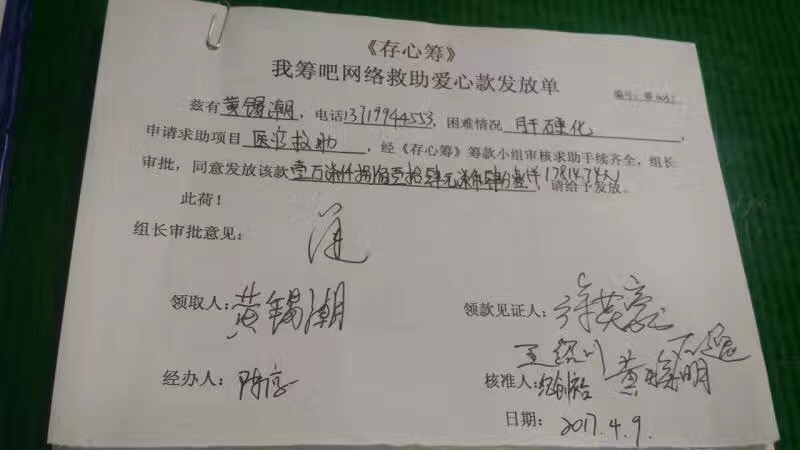 《存心筹》
我筹吧网络救助爱心款发放单
编号：筹005
兹有黄锡潮，电话13719944553，困难情况 肝硬化，
申请求助项目 医疗救助，经《存心筹》筹款小组审核求助手续齐全，组长
审批，同意发放该款壹万柒仟捌佰壹拾肆元柒角肆分 17814.74元 请给予发放。
此荷！
组长审批意见：
领取人：黄锡潮 领款见证人：许英豪
王
经办人：陈 核准人： 黄 明
日期：2017.4.9.